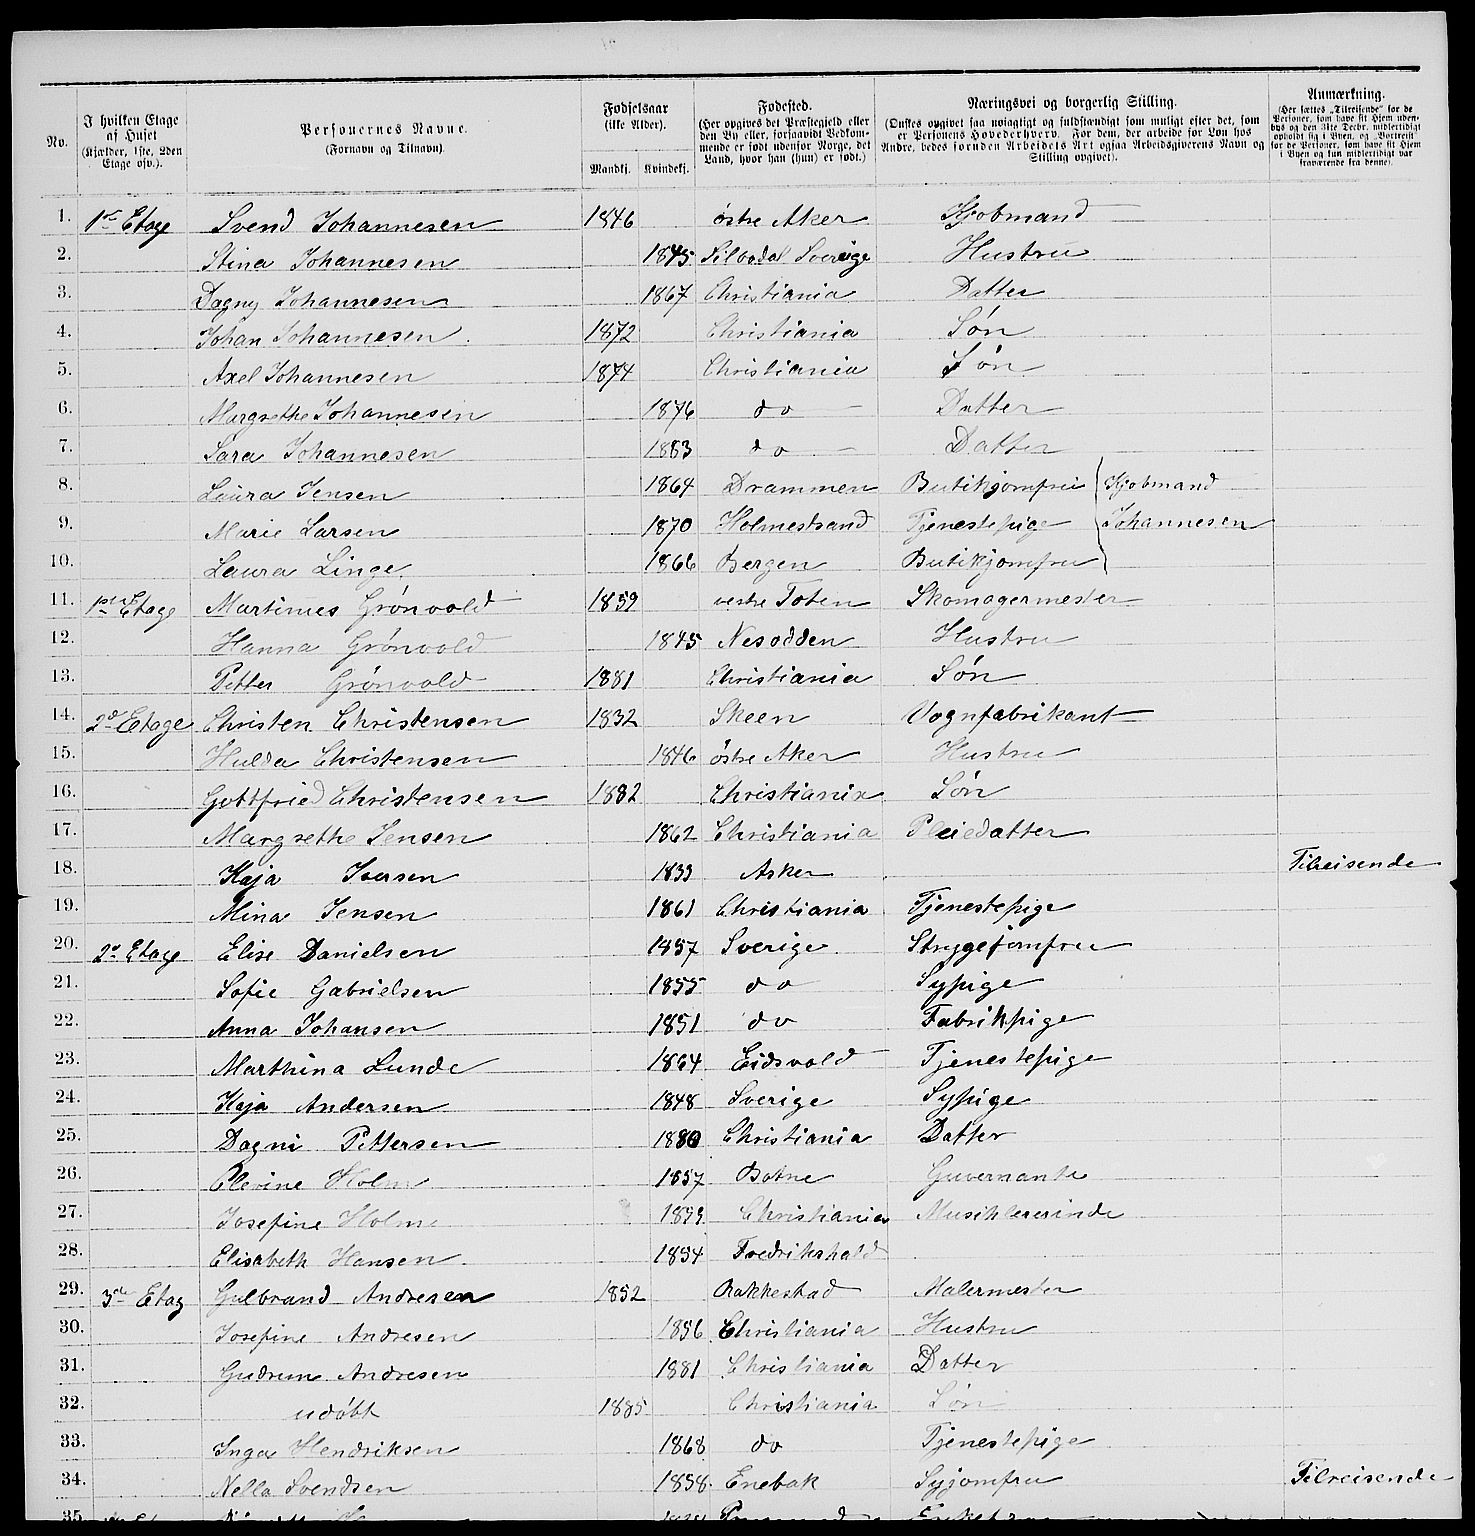 No. | I hvilken Etage af Huset (Kjælder, 1ste, 2den Etage osv.). | Personernes Navne. (Fornavn og Tilnavn). | Fødselsaar (ikke Alder). Mandkj. Kvindekj. | Fødested. (Her opgives det Præstegjeld eller den By eller, forsaavidt Vedkommende er født udenfor Norge, det Land, hvor han (hun) er født.) | Næringsvei og borgerlig Stilling. (Ønskes opgivet saa nøiagtigt og fuldstændigt som muligt efter det, som er Personens Hovederhverv. For dem, der arbeide for Løn hos Andre, bedes foruden Arbeidets Art ogsaa Arbeidsgiverens Navn og Stilling opgivet). | Anmærkning. (Her sættes „Tilreisende" for de Personer, som have sit Hjem udenbys og den 31te Decbr. midlertidigt opholdt sig i Byen, og „Bortreist" for de Personer, som have sit Hjem i Byen og kun midlertidigt var fraværende fra denne).
1. 1ste Etage Svend Johannesen 1846 østre Aker Kjøbmand
2. Stina Johannesen 1845 Silbodal Sverige Hustru
3. Dagny Johannesen 1867 Christiania Datter
4. Johan Johannesen 1872 Christiania Søn
5. Axel Johannesen 1874 Christiania Søn
6. Margrethe Johannesen 1876 do Datter
7. Sara Johannesen 1883 do Datter
8. Laura Jensen 1864 Drammen Butikjomfru Kjøbmand
9. Marie Larsen 1870 Holmestrand Tjenestepige Johannesen
10. Laura Linge 1866 Bergen Butikjomfru
11. 1ste Etage Martinus Grønvold 1859 vestre Toten Skomagermester
12. Hanna Grønvold 1845 Nesodden Hustru
13. Petter Grønvold 1881 Christiania Søn
14. 2d Etage Christen Christensen 1832 Skeen Vognfabrikant
15. Hulda Christensen 1846 østre Aker Hustru
16. Gottfried Christensen 1882 Christiania Søn
17. Margrethe Jensen 1862 Christiania Pleiedatter
18. Kaja Iversen 1833 Asker Tilreisende
19. Mina Jensen 1861 Christiania Tjenestepige
20. 2d Etage Elise Danielsen 1857 Sverige Strygejomfru
21. Sofie Gabrielsen 1855 do Sypige
22. Anna Johansen 1851 do Fabrikpige
23. Marthina Lunde 1864 Eidsvold Tjenestepige
24. Kaja Andersen 1848 Sverige Sypige
25. Dagni Pettersen 1880 Christiania Datter
26. Elevine Holm 1857 Botne Guvernante
27. Josefine Holm Christiania Musiklererinde
28. Elisabeth Hansen 1854 Fredrikshald
29. 3de Etag Gulbrand Andresen 1852 Rakkestad Malermester
30. Josefine Andresen 1856 Christiania Hustru
31. Gudrun Andresen 1881 Christiania Datter
32. udøbt 1885 Christiania Søn
33. Inga Hendriksen 1868 do Tjenestepige
34. Nella Svendsen 1858 Enebak Syjomfru Tilreisende
35.